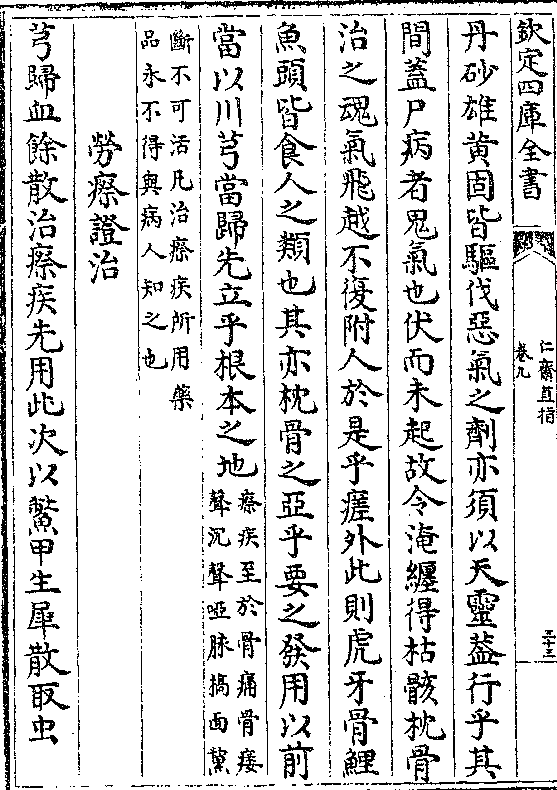 欽定四庫全書
仁齋直指
卷九
三十三
丹砂雄黃固皆驅伐惡氣之劑亦須以天靈蓋行乎其
間蓋尸病者鬼氣也伏而未起故令淹纏得枯骸枕骨
治之魂氣飛越不復附人於是乎瘥外此則虎牙骨鯉
魚頭皆食人之類也其亦枕骨之亞乎要之發用以前
當以川芎當歸先立乎根本之地
瘵疾至於骨痛骨痿
聲沉聲啞脉槁面黧
斷不可活凡治瘵疾所用藥
品永不得與病人知之也
勞瘵證治
芎歸血餘散治瘵疾先用此次以鱉甲生犀散取虫